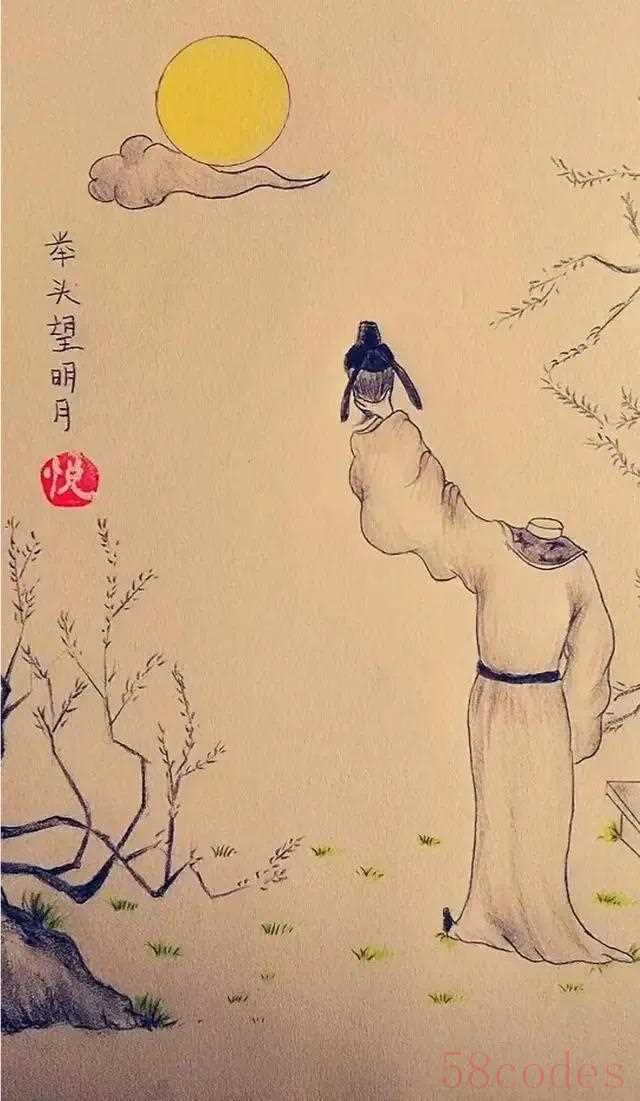 举头望明月
悦
58codes